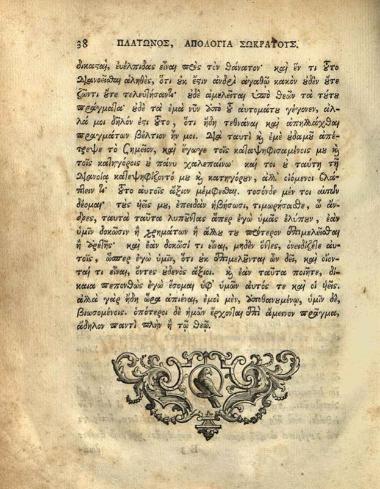 38 ΠΛΑΤΩΝΟΣ, ΑΠΟΛΟΓΙΑ ΣΩΚΡΑΤΟΥΣ.
δικασαὶ, εὐέλπιδας εἶναι πρὸς τὸν θάνατον· καὶ ἕν τι τοῦτο
διανοεῖσθαι ἀληθὲς, ὅτι οὐκ ἔςιν ἀνδρὶ ἀγαθῷ κακὸν οὐδὲν οὔτε
ζῶντι οὔτε τελευτήσαντι· οὐδὲ ἀμελεῖται ὑπὸ θεῶν τὰ τούτου
πράγματα· οὐδὲ τὰ ἐμὰ νῦν ἀπὸ τοῦ αὐτομάτου γέγονεν, ἀλ-
λά μοι δῆλόν ἐςι τοῦτο, ὅτι ἤδη τεθνάναι καὶ ἀπηλλάχθαι
πραγμάτων βέλτιον ἦν μοι. διὰ ταῦτα καὶ ἐμὲ οὐδαμοῦ ἀπέ-
τρεψε τὸ σημεῖον, καὶ ἔγωγε τοῖς καταψηφισαμένοις μου καὶ
τοῖς κατηγόροις οὐ πάνυ χαλεπαίνω· καί τοι οὐ ταύτῃ τῇ
διανοίᾳ κατεψηφίζοντό μου καὶ κατηγόρουν, ἀλλ' οἰόμενοι βλά-
πτειν· τοῦτο αὐτοῖς ἄξιον μέμφεσθαι. τοσόνδε μέν τοι αὐτῶν
δέομαι· τοὺς υἱεῖς μου, ἐπειδὰν ἡβήσωσι, τιμωρήσασθε, ὦ ἄν-
δρες, ταυτὰ ταῦτα λυποῦντες ἅπερ ἐγὼ ὑμᾶς ἐλύπουν, ἐὰν
ὑμῖν δοκῶσιν ἢ χρημάτων ἢ ἄλλου του πρότερον ἐπιμελεῖσθαι
ἢ ἀρετῆς· καὶ ἐὰν δοκῶσί τι εἶναι, μηδὲν ὄντες, ὀνειδίζετε αὐ-
τοῖς, ὥσπερ ἐγὼ ὑμῖν, ὅτι οὐκ ἐπιμελοῦνται ὧν δεῖ, καὶ οἴον-
ταί τι εἶναι, ὄντες οὐδενὸς ἄξιοι. καὶ ἐὰν ταῦτα ποιῆτε, δί-
καια πεπονθὼς ἐγὼ ἔσομαι ὑφ' ὑμῶν αὐτός τε καὶ οἱ υἱεῖς.
ἀλλὰ γὰρ ἤδη ὥρα ἀπιέναι, ἐμοὶ μὲν, ἀποθανουμένῳ, ὑμῖν δὲ,
βιωσομένοις. ὁπότεροι δὲ ἡμῶν ἔρχονται ἐπὶ ἄμεινον πρᾶγμα,
ἄδηλον παντὶ πλὴν ἢ τῷ θεῷ.